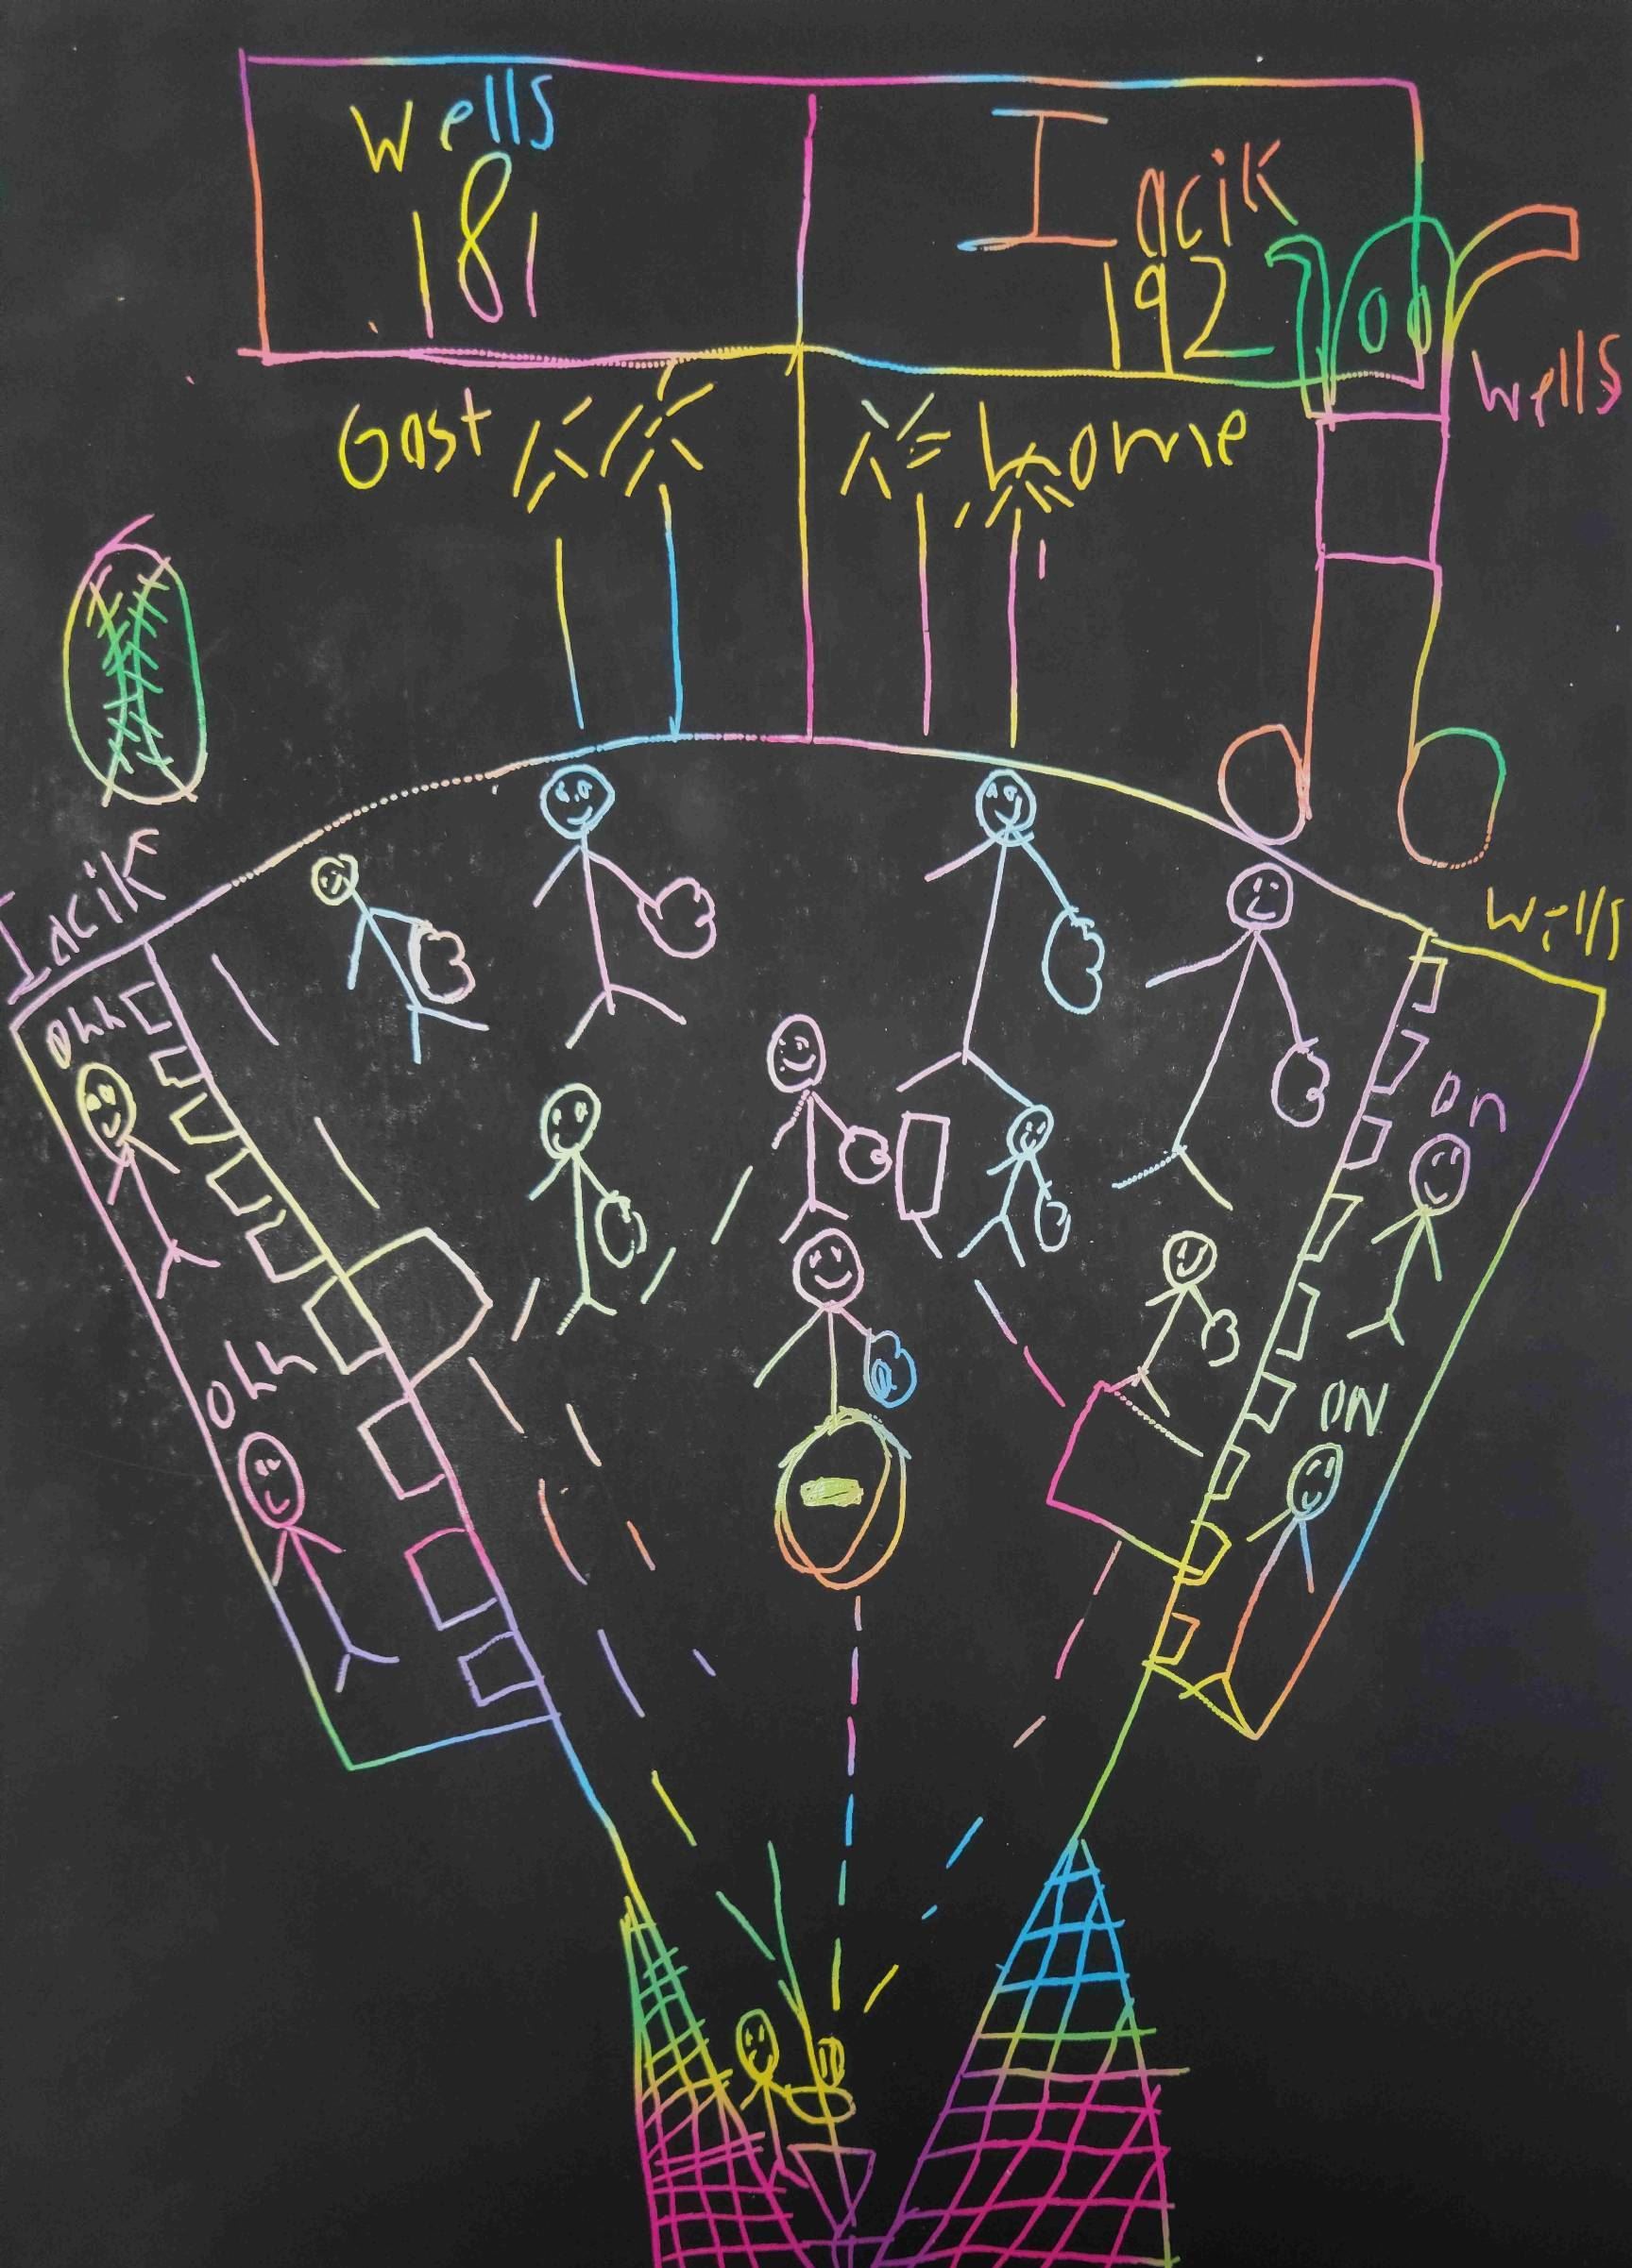 Wells
181
Iacik
192
Gast
home
Wells
Iacik
Wells
Ohh
on
Ohh
ON